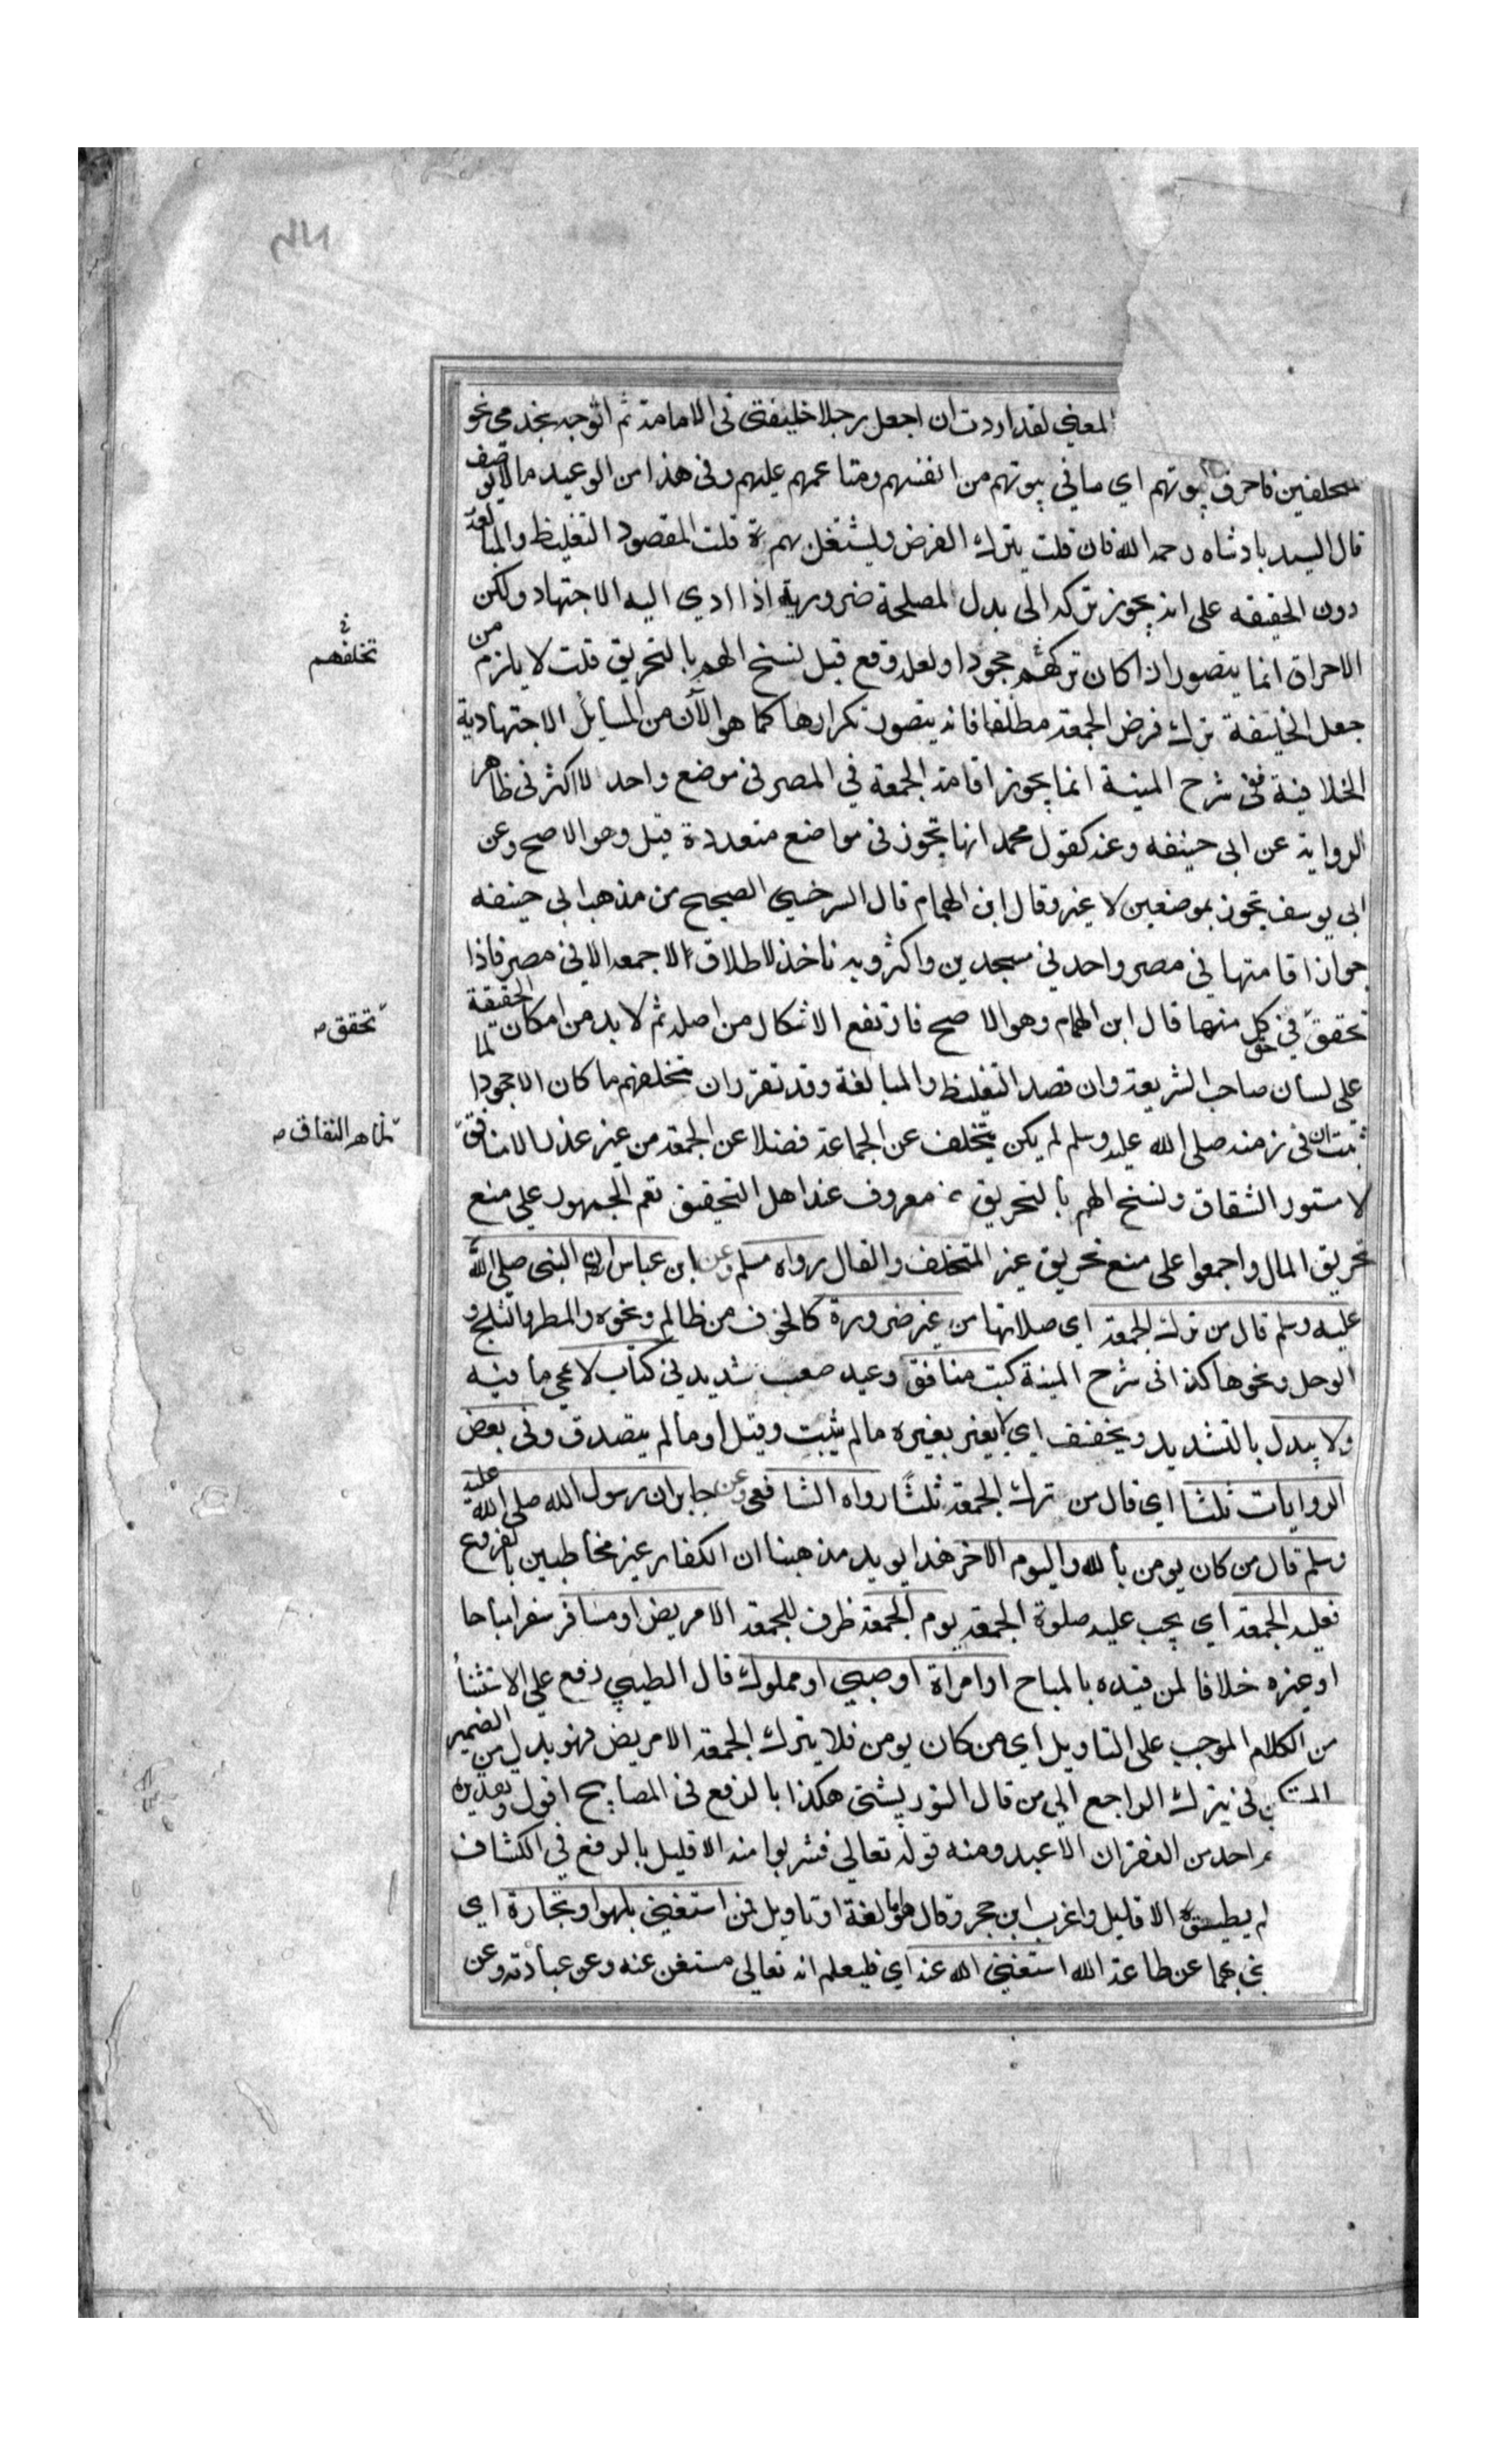 المعنى لقد اردت ان اجعل رجلا خليفتى فى الامامة ثم اتوجه بخدمى نحو
المتخلفين فاحرق بيوتهم اي ما في بيوتهم من انفسهم ومتاعهم عليهم وفى هذا من الوعيد ما لا يوصف
قال السيد بادشاه رحمه الله فان قلت يترك الفرض ويشتغل بهم قلت المقصود التغليظ والمبالغة
دون الحقيقه على انه يجوز تركه الى بدل لمصلحة ضرورية اذا ادي اليه الاجتهاد ولكن
الاحراق انما يتصور اذا كان تركهم جحودا ولعله وقع قبل نسخ الهم بالتحريق قلت لا يلزم من
جعل الخليفة ترك فرض الجمعة مطلقا فانه يتصور تكرارها كما هو الآن من المسايل الاجتهادية
الخلافية ففى شرح المنية انما يجوز اقامة الجمعة في المصر فى موضع واحد لا اكثر فى ظاهر
الرواية عن ابى حنيفه وعنه كقول محمد انها تجوز فى مواضع متعددة قيل وهو الاصح وعن
ابى يوسف تجوز بموضعين لا غير وقال ابن الهمام قال السرخسي الصحيح من مذهب ابى حنيفه
جواز اقامتها في مصر واحد في مسجدين واكثر وبه ناخذ لاطلاق لا جمعه الا فى مصر فاذا
تحقق في حق كل منهما قال ابن الهمام وهو الاصح فارتفع الاشكال من اصله ثم لا بد من امكان الحقيقة لما
على لسان صاحب الشريعة وان قصد التغليظ والمبالغة وقد تقرر ان تخلفهم ما كان الا جحودا
ثبت ان فى زمنه صلى الله عليه وسلم لم يكن يتخلف عن الجماعة فضلا عن الجمعة من غير عذر الا منافق
لا مستور الشقاق ونسخ الهم بالتحريق معروف عند اهل التحقيق نعم الجمهور على منع
تحريق المال واجمعوا على منع تحريق غير المتخلف والغال رواه مسلم وعن ابن عباس ان النبى صلى الله
عليه وسلم قال من ترك الجمعة اي صلاتها من غير ضرورة كالخوف من ظالم ونحوه والمطر والثلج و
الوحل ونحوها كذا فى شرح المنية كتب منافق وعيد صعب شديد في كتاب لا يمحى ما فيه
ولا يبدل بالتشديد ويخفف اي لا يغير بغيره ما لم يثبت وقيل او ما لم يتصدق وفى بعض
الروايات ثلثا اي قال من ترك الجمعة ثلثا رواه الشافعى وعن جابر ان رسول الله صلى الله عليه
وسلم قال من كان يومن بالله واليوم الاخر هذا يويد مذهبنا ان الكفار غير مخاطبين بالفروع
فعليه الجمعة اي يجب عليه صلوة الجمعة يوم الجمعة ظرف للجمعة الا مريض او مسافر سفرا مباحا
او غيره خلافا لمن قيده بالمباح او امراة او صبي او مملوك قال الطيبي رفع على الاستثنا
من الكلام الموجب على التاويل اي من كان يومن فلا يترك الجمعة الا مريض فهو بدل من الضمير
المستكن فى يترك الراجع الى من قال التوربشتى هكذا بالرفع فى المصابيح اقول وتقديره
احد من الغفران الا عبد ومنه قوله تعالى فشربوا منه الا قليل بالرفع في الكشاف
لم يطيعوه الا قليل واغرب ابن حجر وقال هو لغة او تاويل فمن استغنى بلهو او تجارة اي
غنى بهما عن طاعة الله استغنى الله عنه اي فليعلم انه تعالى مستغن عنه وعن عبادته وعن
تخلفهم
تحقق
ظاهر النفاق